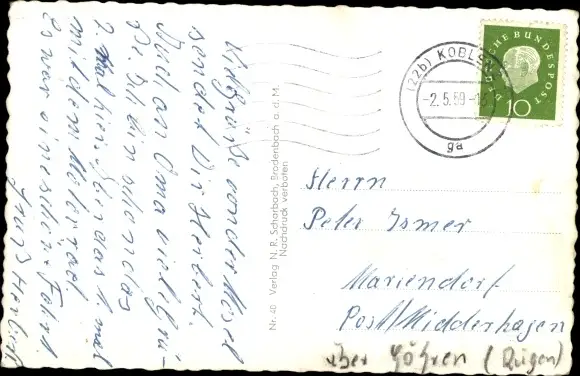 Viel Grüße von der Mosel
sendet Dir Herbert.
Auch an Oma viele Grü-
ße. Ich bin schon das
2. Mal hier. Dies das 1. mal
mit dem Motorrad.
Es war eine schöne Fahrt.
Herbert
Nr. 40 Verlag N. R. Scharbach, Brodenbach a. d. M.
Nachdruck verboten
(22b) KOBLENZ
-2.5.59-
ga
DEUTSCHE BUNDESPOST
10
Herrn
Peter Ismer
Mariendorf
Post/Midderhagen
über Göhren (Rügen)